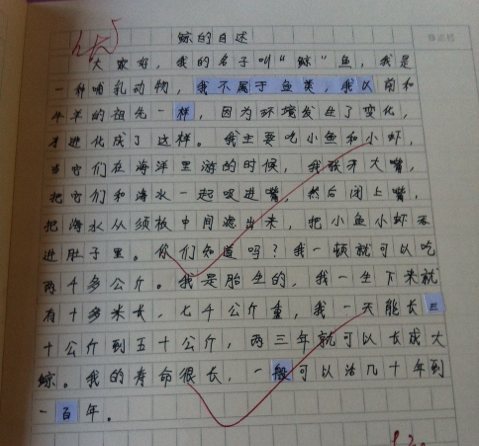 鲸的自述
大家好，我的名字叫“鲸”鱼，我是
一种哺乳动物，我不属于鱼类，我以前和
牛羊的祖先一样，因为环境发生了变化，
才进化成了这样。我主要吃小鱼和小虾，
当它们在海洋里游的时候，我张开大嘴，
把它们和海水一起吸进嘴，然后闭上嘴，
把海水从须板中间滤出来，把小鱼小虾吞
进肚子里。你们知道吗？我一顿就可以吃
两千多公斤。我是胎生的，我一生下来就
有十多米长，七千公斤重，我一天能长三
十公斤到五十公斤，两三年就可以长成大
鲸。我的寿命很长，一般可以活几十年到
一百年。